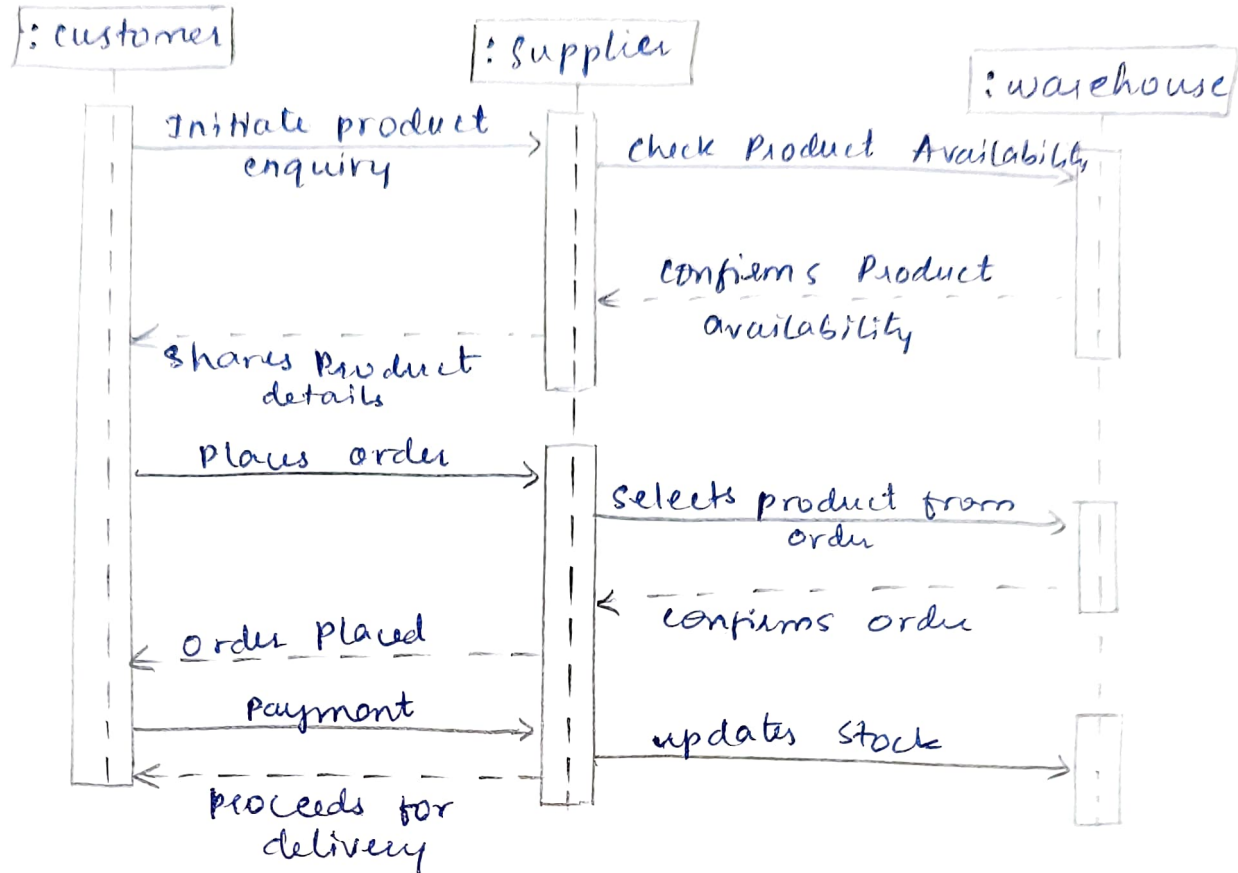 : customer
: Supplier
: warehouse
Initiate product
enquiry
check Product Availability
confirms Product
availability
shares Product
details
Places order
selects product from
order
confirms order
order Placed
Payment
updates stock
proceeds for
delivery